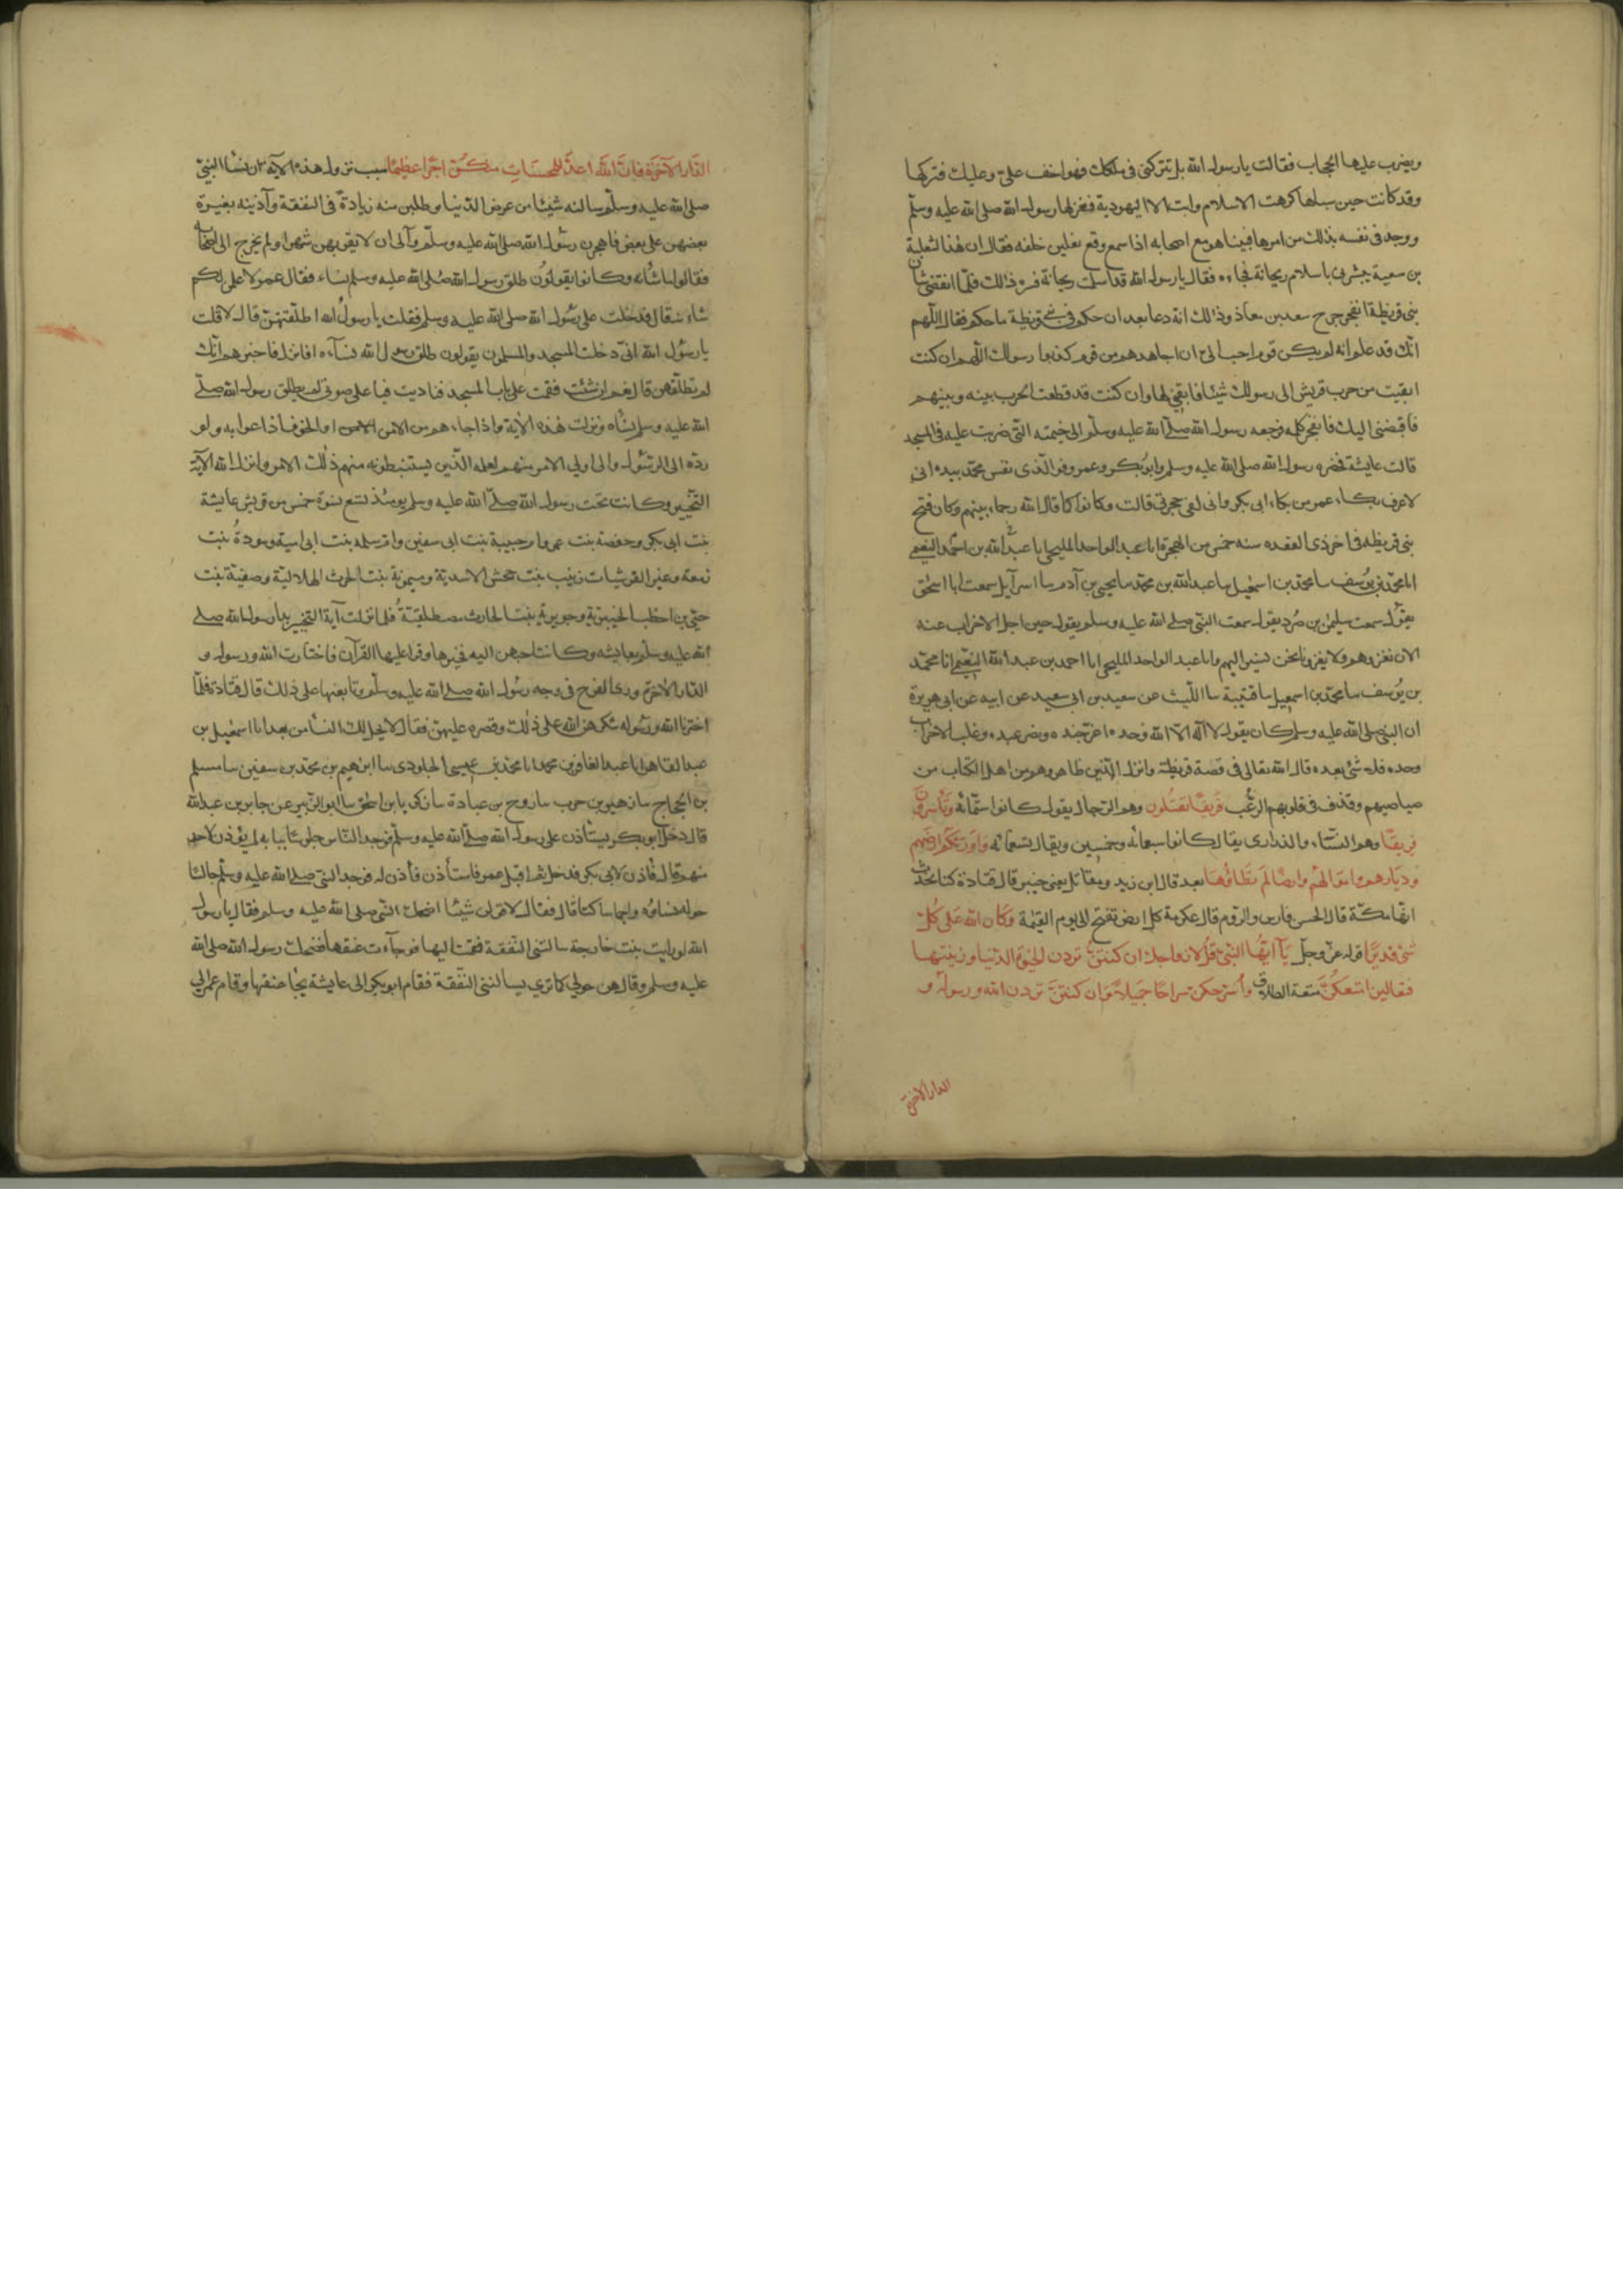 ويضرب عليها الحجاب فقالت يا رسول الله بل تتركنى فى ملكك فهو اخف علىّ وعليك فتركها
وقد كانت حين سباها كرهت الاسلام وابت الا اليهودية فعزلها رسول الله صلى الله عليه وسلم
ووجد فى نفسه بذلك من امرها فبينا هو مع اصحابه اذا سمع وقع نعلين خلفه فقال ان هذا لثعلبة
بن سعية يبشرنى باسلام ريحانة فجاءه فقال يا رسول الله قد اسلمت ريحانة فسره ذلك فلمّا انقضى شان
بنى قريظة انفجر جرح سعد بن معاذ وذلك انه دعا بعد ان حكم فى بنى قريظة ما حكم فقال اللّهم
انّك قد علمت انه لم يكن قوم احب الىّ ان اجاهدهم من قوم كذبوا رسولك اللّهم ان كنت
ابقيت من حرب قريش الى رسولك شيئا فابقنى لها وان كنت قد قطعت الحرب بينه وبينهم
فاقبضنى اليك فانفجر كلمه فرجعه رسول الله صلى الله عليه وسلّم الى خيمته التى ضربت عليه فى المسجد
قالت عايشة فحضره رسول الله صلى الله عليه وسلم وابو بكر وعمر فو الّذى نفس محمّد بيده انى
لاعرف بكاء عمر من بكاء ابى بكر وانى لفى حجرتى قالت وكانوا كما قال الله رحماء بينهم وكان فتح
بنى قريظه فى اخر ذى القعده سنه خمس من الهجرة انا عبد الواحد المليحى انا عبد الله بن احمد النعيمى
انا محمّد بن يوسف سا محمّد بن اسمعيل سا عبد الله بن محمّد سا يحيى بن آدم سا اسرآيل سمعت ابا اسحق
يقول سمعت سليمن بن صُرد يقول سمعت النبّى صلى الله عليه وسلم يقول حين اجلى الاحزاب عنه
الان نغزوهم ولا يغزونا نحن نسير اليهم وانا عبد الواحد المليحى انا احمد بن عبد الله النعيمى انا محمّد
بن يُوسف سا محمّد بن اسمعيل سا قتيبة سا اللّيث عن سعيد بن ابى سعيد عن ابيه عن ابى هريرة
ان النبىّ صلى الله عليه وسلم كان يقول لا اله الا الله وحده اعزّ جنده ونصر عبده وغلب الاحزاب
وحده فلا شئ بعده قال الله تعالى فى قصة قريظة وانزل الّذين ظاهروهم من اهل الكتاب من
صياصيهم وقذف فى قلوبهم الرّعُب فَرِيقًا تَقتلُون وهم الرّجال يقول كانوا ستّمائه وَتَأسرُون
فِريقًا وهم النسّاء والذرارى يقال كانوا سبعمائه وخمسين ويقال تسعمائه وَاَورَثكُم ارضَهم
وَديارهم وامَوالَهُم وارضًا لَم تَطَاؤُهَا بعد قال ابن زيد ومقاتل يعنى خيبر قال قتادة كنا نحدّث
انّها مكّة قال الحسن فارس والرّوم قال عكرمة كل ارض تفتح الى يوم القيمة وَكَان الله عَلى كُلّ
شئ قديرًا قوله عزّ وجلّ يَآ ايّهَا النّبىّ قُل لازواجك ان كنتنّ تردن الحيَوة الدّنيا وزينتهَا
فتعالين امتعكُنّ متعة الطلاق وأُسَرّحكن سراحًا جَميلاً وَان كنتنّ تردن الله ورسولهُ و
الدار الاخرة
الدّار الآخرَة فانّ اللهَ اعدّ للمحسناتِ منكُنّ اجرًا عظيمًا سبب نزول هذه الآية ان نسٓا النّبىّ
صلى الله عليه وسلّم سالنه شيئا من عرض الدّنيا وطلبن منه زيادة فى النفقة وآذينه بغيرة
بعضهن على بعض فاهجرهن رسول الله صلى الله عليه وسلّم وآلى ان لا يقربهن شهرا ولم يخرج الى اصحابه
فقالوا ما شانه وكانوا يقولون طلق رسول الله صلى الله عليه وسلم نساءه فقال عمر لاعلمن لكم
شانه قال فدخلت على رسول الله صلى الله عليه وسلم فقلت يا رسول الله اطلّقتهنّ قال لا قلت
يا رسول الله انّى دخلت المسجد والمسلمون يقولون طلق رسول الله نسآءه افانزل فاخبرهم انّك
لم تطلّقهن قال نعم ان شئت فقمت على باب المسجد فناديت فيا على صوتى لم يطلق رسول الله صلّى
الله عليه وسلم نساه ونزلت هذه الاية واذا جاءهم من الامر الامن او الخوف اذاعوا به ولو
ردّه الى الرّسُول والى اولى الامر منهم لعلمه الّذين يستنبطونه منهم ذلك الامر وانزل الله الآية
التّخيير وكانت تحت رسول الله صلّى الله عليه وسلم يومئذ تسع نسوة خمس من قريش عايشة
بنت ابى بكر وحفصة بنت عمر وام حبيبة بنت ابى سفين وام سلمه بنت ابى امية وسودة بنت
زمعة وغير القرشيات زينب بنت جحش الاسديّة وميمونة بنت الحرث الهلاليّة وصفيّة بنت
حيّى بن اخطب الخيبريّة وجويرية بنت الحارث مصطلقيّةُ فلما نزلت آية التخيير بدا رسول الله صلى
الله عليه وسلّم بعايشه وكانت احبهن اليه فخيرها وقرا عليها القرآن فاختارت الله ورسوله و
الدّار الاخرة ورى الفرح فى وجه رسُول الله صلى الله عليه وسلّم وتابعنها على ذلك قال قتادة فلمّا
اخترنا الله ورسُوله شكرهنّ الله على ذلك وقصره عليهنّ فقال لا يحل لك النّسا من بعد انا اسمعيل بن
عبد القاهر انا عبد الغافر بن محمد انا محمد بن عيسى الجلودى سا ابرهيم بن محمد بن سفين سا مسلم
بن الحجاج سا زهير بن حرب سا روح بن عبادة سا زكريا بن اسحق سا ابو الزّبير عن جابر بن عبد الله
قال دخل ابو بكر يستأذن على رسول الله صلى الله عليه وسلّم فوجد النّاس جلوسًا ببابه لم يؤذن لاحد
منهم قال فأذن لابى بكر فدخل ثم اقبل عمر فاستأذن فأذن له فوجد النبّى صلى الله عليه وسلّم جالسًا
حوله نساؤه واجما ساكتا قال فقال لاقولن شيئًا اضحك النّبى صلى الله عليه وسلم فقال يا رسول
الله لو رايت بنت خارجة سالتنى النّفقة فقمت اليها فوجآءت عنقها فضحك رسول الله صلى الله
عليه وسلم وقال هن حولى كما ترى يسالننى النفقة فقام ابو بكر الى عايشة يجا عنقها وقام عمر الى